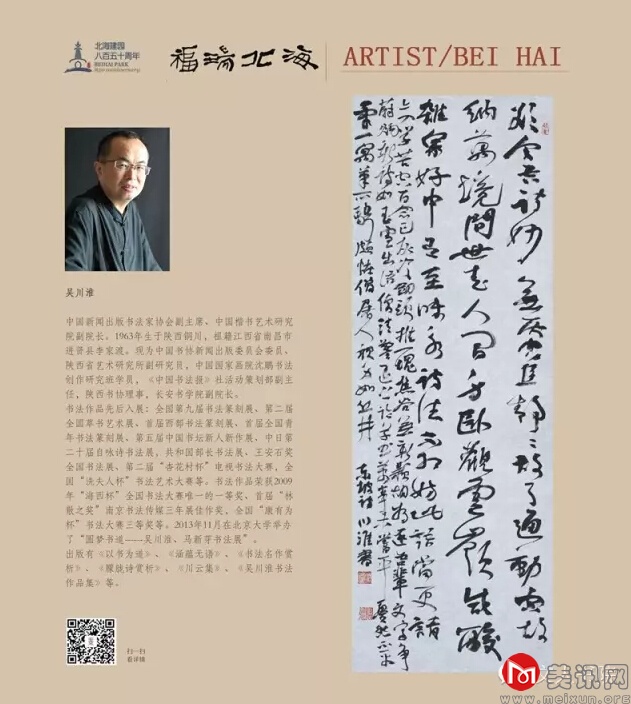 北海建园
八百五十周年
BEIHAI PARK
福瑞北海
ARTIST/BEI HAI
吴川淮
中国新闻出版书法家协会副主席、中国楷书艺术研究
院副院长。1963年生于陕西铜川，祖籍江西省南昌市
进贤县李家渡。现为中国书协新闻出版委员会委员、
陕西省艺术研究所副研究员，中国国家画院沈鹏书法
创作研究班学员，《中国书法报》社活动策划部副主
任，陕西书协理事，长安书学院副院长。
书法作品先后入展：全国第九届书法篆刻展、第二届
全国草书艺术展、首届西部书法篆刻展、首届全国青
年书法篆刻展、第五届中国书坛新人新作展、中日第
二十届自咏诗书法展，共和国部长书法展、王安石奖
全国书法展、第二届“杏花村杯”电视书法大赛，全
国“冼夫人杯”书法艺术大赛等。书法作品荣获2009
年“海西杯”全国书法大赛唯一的一等奖，首届“林
散之奖”南京书法传媒三年展佳作奖，全国“康有为
杯”书法大赛三等奖等。2013年11月在北京大学举办
了“圆梦书道——吴川淮、马新芽书法展”。
出版有《以书为道》、《涵蕴无语》、《书法名作赏
析》、《朦胧诗赏析》、《川云集》、《吴川淮书法
作品集》等。
扫一扫
看详情
納萬境閱世走人間
雜眾好中有至味永詩法不相妨此語當更請
上人學苦空百念已灰冷劍頭惟一吷焦谷無新穎胡為逐吾輩文字爭
氣一寓筆所騁頗怪浮屠人視身如丘井
東坡詩 川淮書
美讯网
www.meixun.org